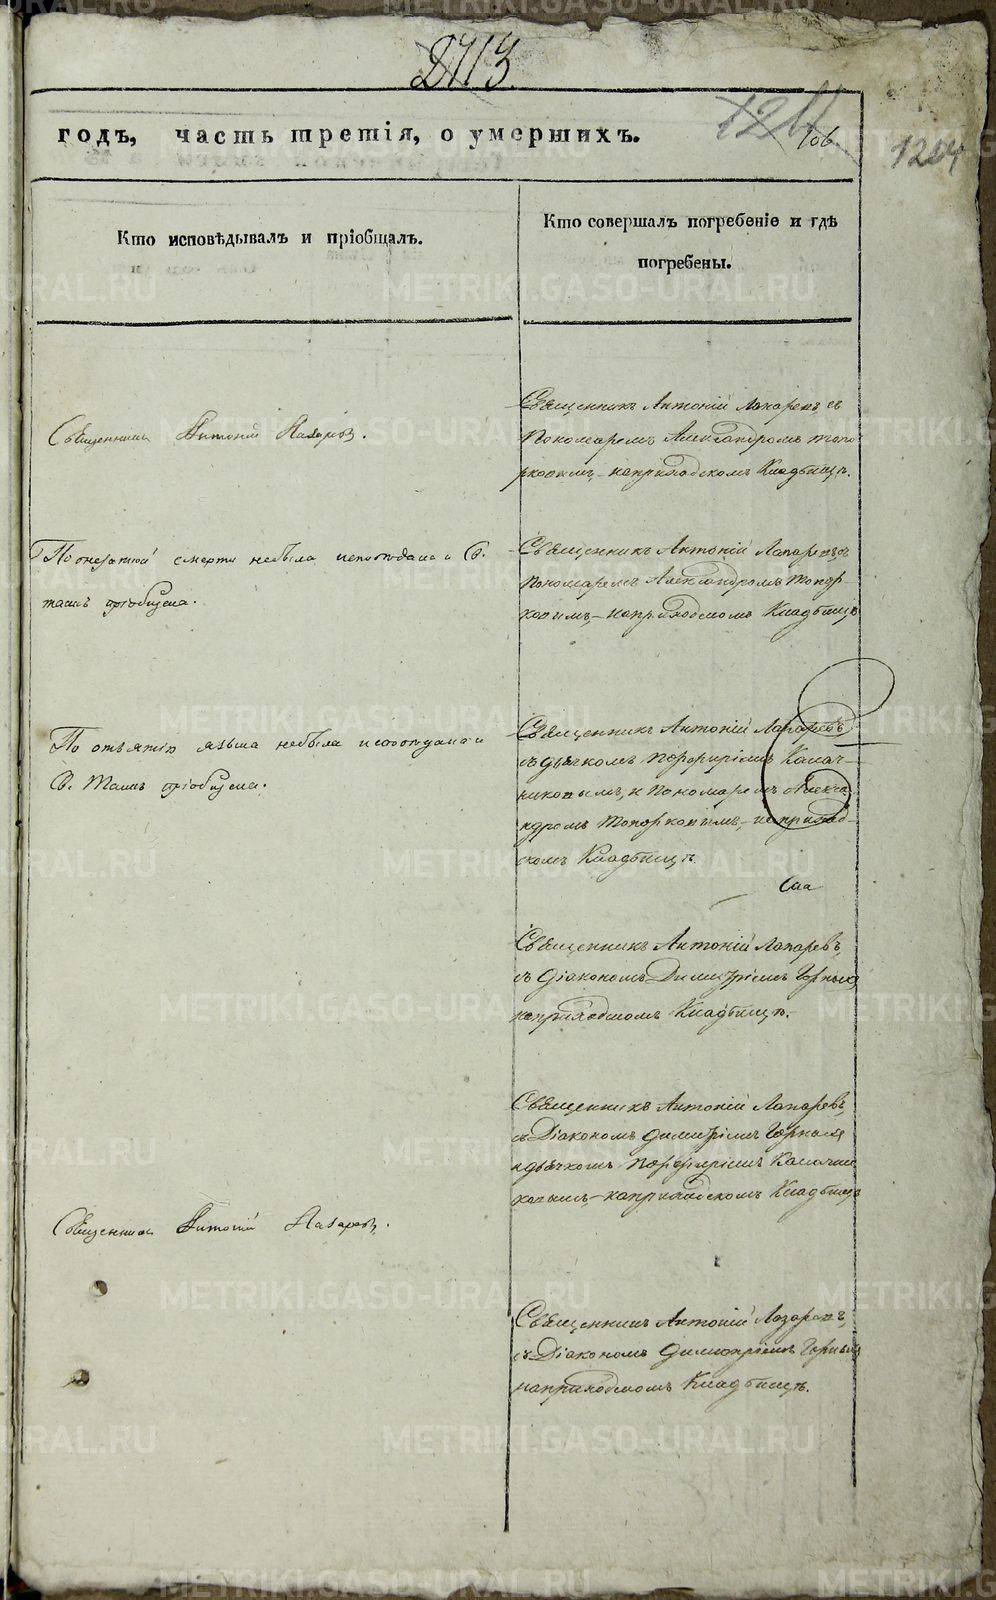 2113.
1211
106
1214
годъ, часть третія, о умершихъ.
Кто исповѣдывалъ и пріобщалъ.
Кто совершалъ погребеніе и гдѣ
погребены.
Священникъ Антоній Лазаревъ.
Священникъ Антоній Лазаревъ, съ
Пономаремъ Александромъ Топо
рковымъ, – наприходскомъ Кладбищѣ.
По скорой смерти небыла исповѣдана и Св.
таинъ пріобщена.
Священникъ Антоній Лазаревъ, съ
Пономаремъ Александромъ Топор
ковымъ, – наприходскомъ Кладбищѣ
По отъятію языка небыла исповѣдана и
Св. Таинъ пріобщена.
Священникъ Антоній Лазаревъ
съ дьячкомъ Порфиріемъ Калач-
никовымъ, и Пономаремъ Алекса
ндромъ Топорковымъ, – наприход-
скомъ Кладбищѣ.
Священникъ Антоній Лазаревъ,
съ Діакономъ Димитріемъ
наприходскомъ Кладбищѣ.
Священникъ Антоній Лазаревъ,
съ Діакономъ Димитріемъ
и дьячкомъ Порфиріемъ Калачни
ковымъ – наприходскомъ Кладбищѣ
Священникъ Антоній Лазаревъ.
Священникъ Антоній Лазаревъ,
съ Діакономъ Димитріемъ
наприходскомъ Кладбищѣ.
METRIKI.GASO-URAL.RU